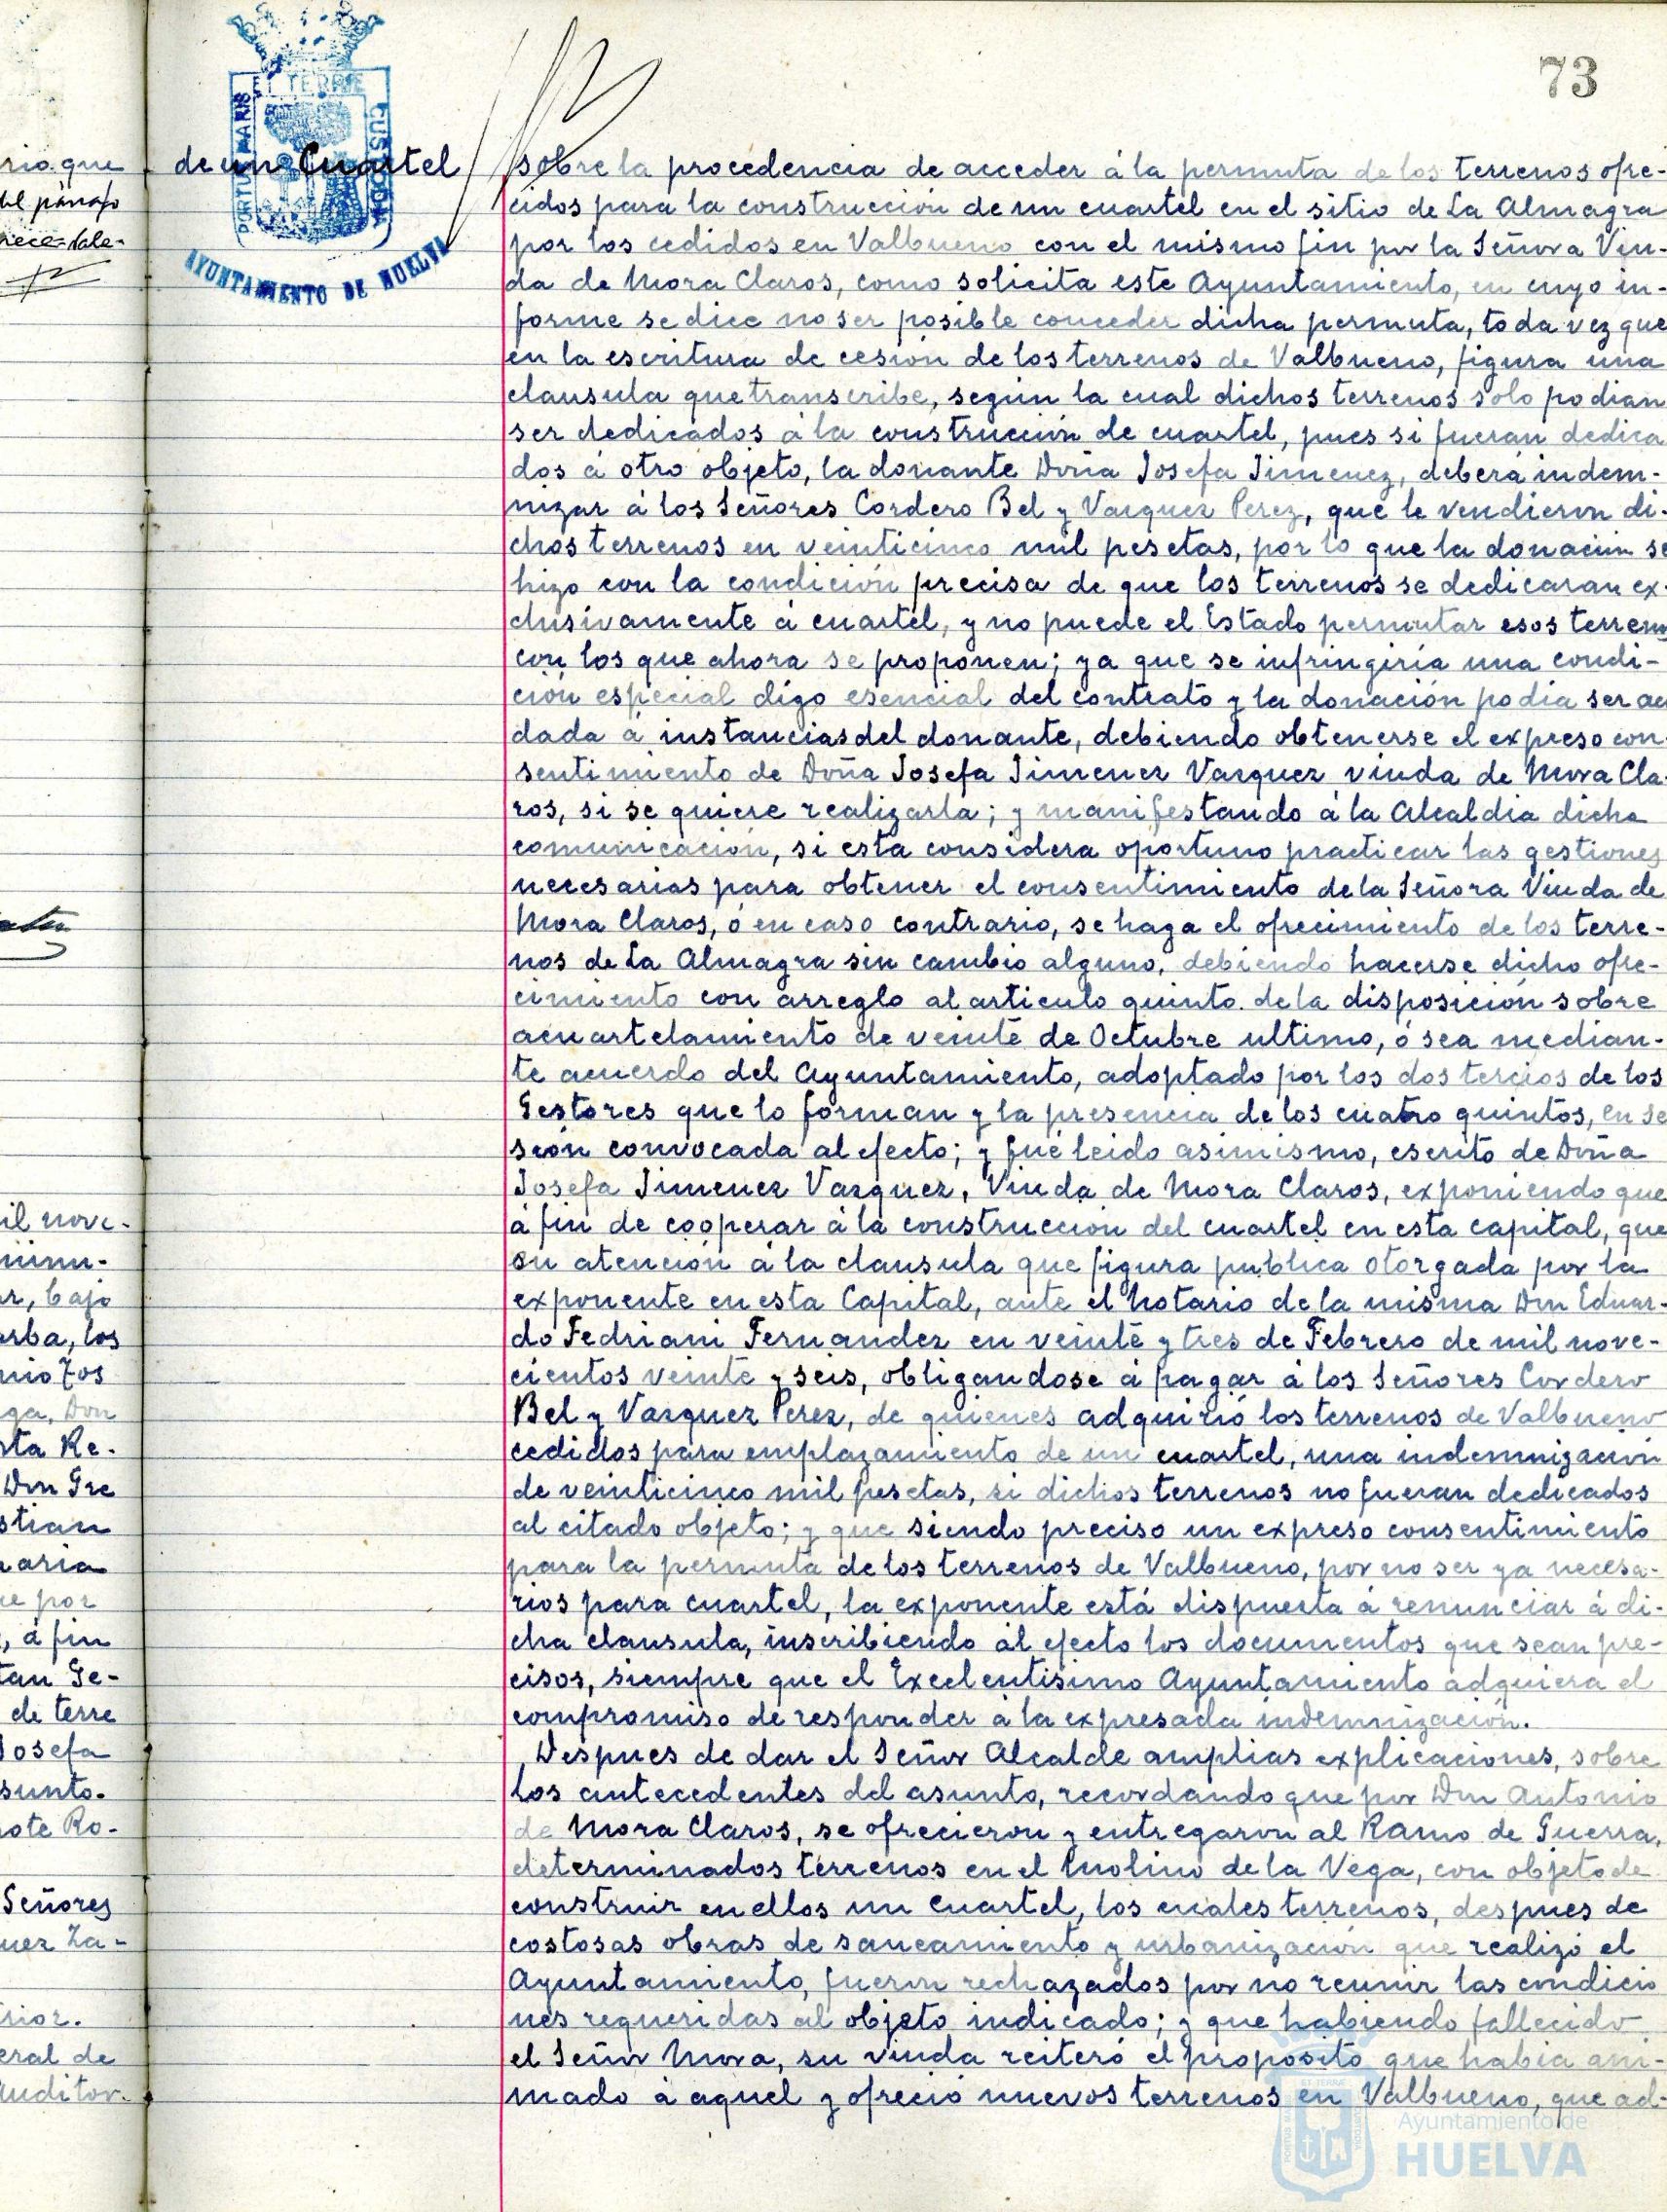 73
ET TERRE
PORTUS MARIS
CUSTODIA
AYUNTAMIENTO DE HUELVA
de un Cuartel
sobre la procedencia de acceder á la permuta de los terrenos ofre-
cidos para la construcción de un cuartel en el sitio de La Almagra
por los cedidos en Valbueno con el mismo fin por la Señora Viu-
da de Mora Claros, como solicita este Ayuntamiento, en cuyo in-
forme se dice no ser posible conceder dicha permuta, toda vez que
en la escritura de cesión de los terrenos de Valbueno, figura una
clausula que transcribe, según la cual dichos terrenos solo podian
ser dedicados á la construcción de cuartel, pues si fueran dedica
dos á otro objeto, la donante Doña Josefa Jimenez, deberá indem-
nizar á los Señores Cordero Bel y Vazquez Perez, que le vendieron di-
chos terrenos en veinticinco mil pesetas, por lo que la donación se
hizo con la condición precisa de que los terrenos se dedicaran ex-
clusivamente á cuartel, y no puede el Estado permutar esos terrenos
con los que ahora se proponen; ya que se infringiría una condi-
ción especial digo esencial del contrato y la donación podia ser
dada á instancias del donante, debiendo obtenerse el expreso con-
sentimiento de Doña Josefa Jimenez Vazquez viuda de Mora Cla-
ros, si se quiere realizarla; y manifestando á la Alcaldia dicha
comunicación, si esta considera oportuno practicar las gestiones
necesarias para obtener el consentimiento de la Señora Viuda de
Mora Claros, ó en caso contrario, se haga el ofrecimiento de los terre-
nos de La Almagra sin cambio alguno, debiendo hacerse dicho ofre-
cimiento con arreglo al articulo quinto de la disposición sobre
acuartelamiento de veinte de Octubre ultimo, ó sea median-
te acuerdo del Ayuntamiento, adoptado por los dos tercios de los
Gestores que lo forman y la presencia de los cuatro quintos, en se
sion convocada al efecto; y fué leido asimismo, escrito de Doña
Josefa Jimenez Vazquez, Viuda de Mora Claros, exponiendo que
á fin de cooperar á la construcción del cuartel en esta capital, que
en atención á la clausula que figura publica otorgada por la
exponente en esta Capital, ante el Notario de la misma Don Eduar-
do Fedriani Fernandez en veinte y tres de Febrero de mil nove-
cientos veinte y seis, obligandose á pagar á los Señores Cordero
Bel y Vazquez Perez, de quienes adquirió los terrenos de Valbueno
cedidos para emplazamiento de un cuartel, una indemnización
de veinticinco mil pesetas, si dichos terrenos no fueran dedicados
al citado objeto; y que siendo preciso un expreso consentimiento
para la permuta de los terrenos de Valbueno, por no ser ya necesa-
rios para cuartel, la exponente está dispuesta á renunciar á di-
cha clausula, inscribiendo al efecto los documentos que sean pre-
cisos, siempre que el Excelentisimo Ayuntamiento adquiera el
compromiso de responder á la expresada indemnización.
Despues de dar el Señor Alcalde amplias explicaciones, sobre
los antecedentes del asunto, recordando que por Don Antonio
de Mora Claros, se ofrecieron y entregaron al Ramo de Guerra,
determinados terrenos en el Molino de la Vega, con objeto de
construir en ellos un cuartel, los cuales terrenos, despues de
costosas obras de saneamiento y urbanización que realizó el
Ayuntamiento, fueron rechazados por no reunir las condicio
nes requeridas al objeto indicado; y que habiendo fallecido
el Señor Mora, su viuda reiteró el proposito que habia ani-
mado á aquel y ofreció nuevos terrenos en Valbueno, que ad-
Ayuntamiento de
HUELVA